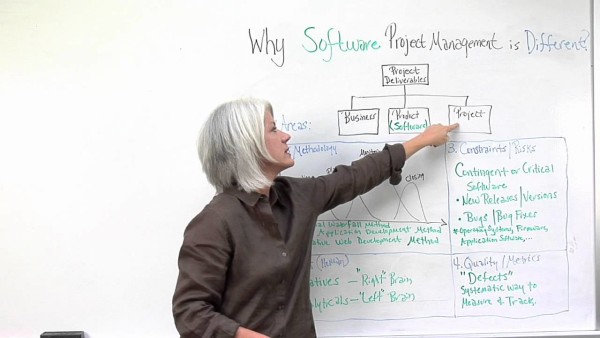 Why Software Project Management is Different?
Project
Deliverables
Business
Product
(Software)
Project
Areas:
Methodology
Closing
Waterfall Method
Application Development Method
Web Development Method
(Human)
"Right" Brain
"Left" Brain
3. Constraints/Risks
Contingent or Critical
Software
• New Releases/Versions
• Bugs/Bug Fixes
*Operating Systems, Firmware,
Application Software,...
4. Quality/Metrics
"Defects"
Systematic way to
Measure & Track.